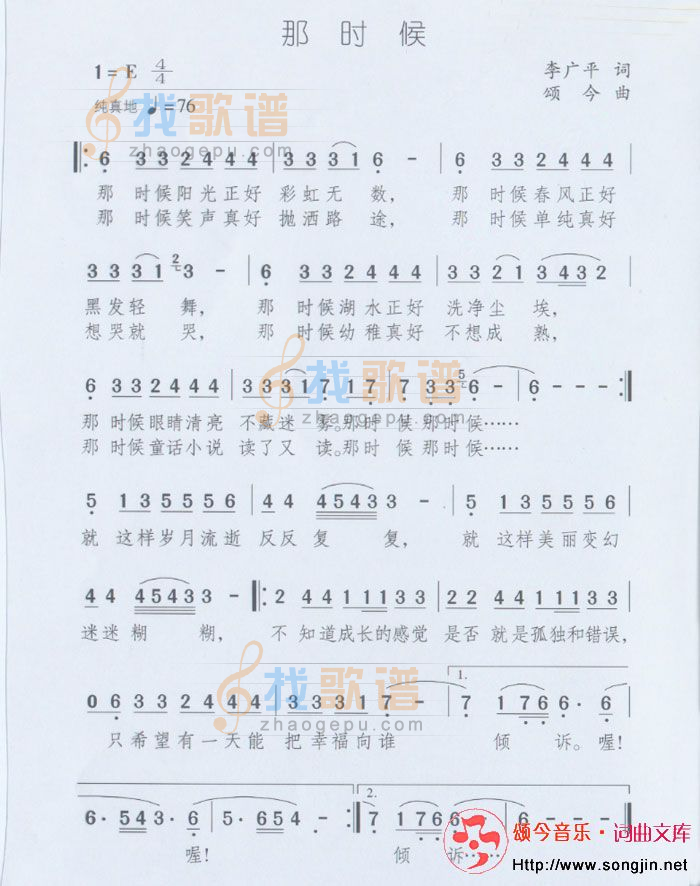 那时候
1=E 4/4
李广平 词
纯真地 ♩=76
颂今 曲
找歌谱
zhaogepu.com
6 3 3 2 4 4 4 | 3 3 3 1 6 - | 6 3 3 2 4 4 4
那 时候阳光正好 彩虹无 数, 那 时候春风正好
那 时候笑声真好 抛洒路 途, 那 时候单纯真好
3 3 3 1 3 - | 6 3 3 2 4 4 4 | 3 3 2 1 3 4 3 2
黑发轻 舞, 那 时候湖水正好 洗净尘 埃,
想哭就 哭, 那 时候幼稚真好 不想成 熟,
找歌谱
zhaogepu.com
6 3 3 2 4 4 4 | 3 3 3 1 7 1 7 | 7 3 3 6 - | 6 - - -
那 时候眼睛清亮 不藏迷 雾。那时 候 那时候……
那 时候童话小说 读了又 读。那时 候 那时候……
5 1 3 5 5 5 6 | 4 4 4 5 4 3 3 - | 5 1 3 5 5 5 6
就 这样岁月流逝 反反 复 复, 就 这样美丽变幻
4 4 4 5 4 3 3 - 2 4 4 1 1 3 3 | 2 2 4 4 1 1 1 3 3
迷迷 糊 糊, 不 知道成长的感觉 是否 就是孤独和错误,
找歌谱
zhaogepu.com
1.
0 6 3 3 2 4 4 4 | 3 3 3 3 1 7 - | 7 1 7 6 6. 6
只希望有一天能 把幸福向谁 倾 诉。喔!
2.
6. 5 4 3. 6 | 5. 6 5 4 - 7 1 7 6 6
喔! 倾 诉……
颂今音乐·词曲文库
Http://www.songjin.net